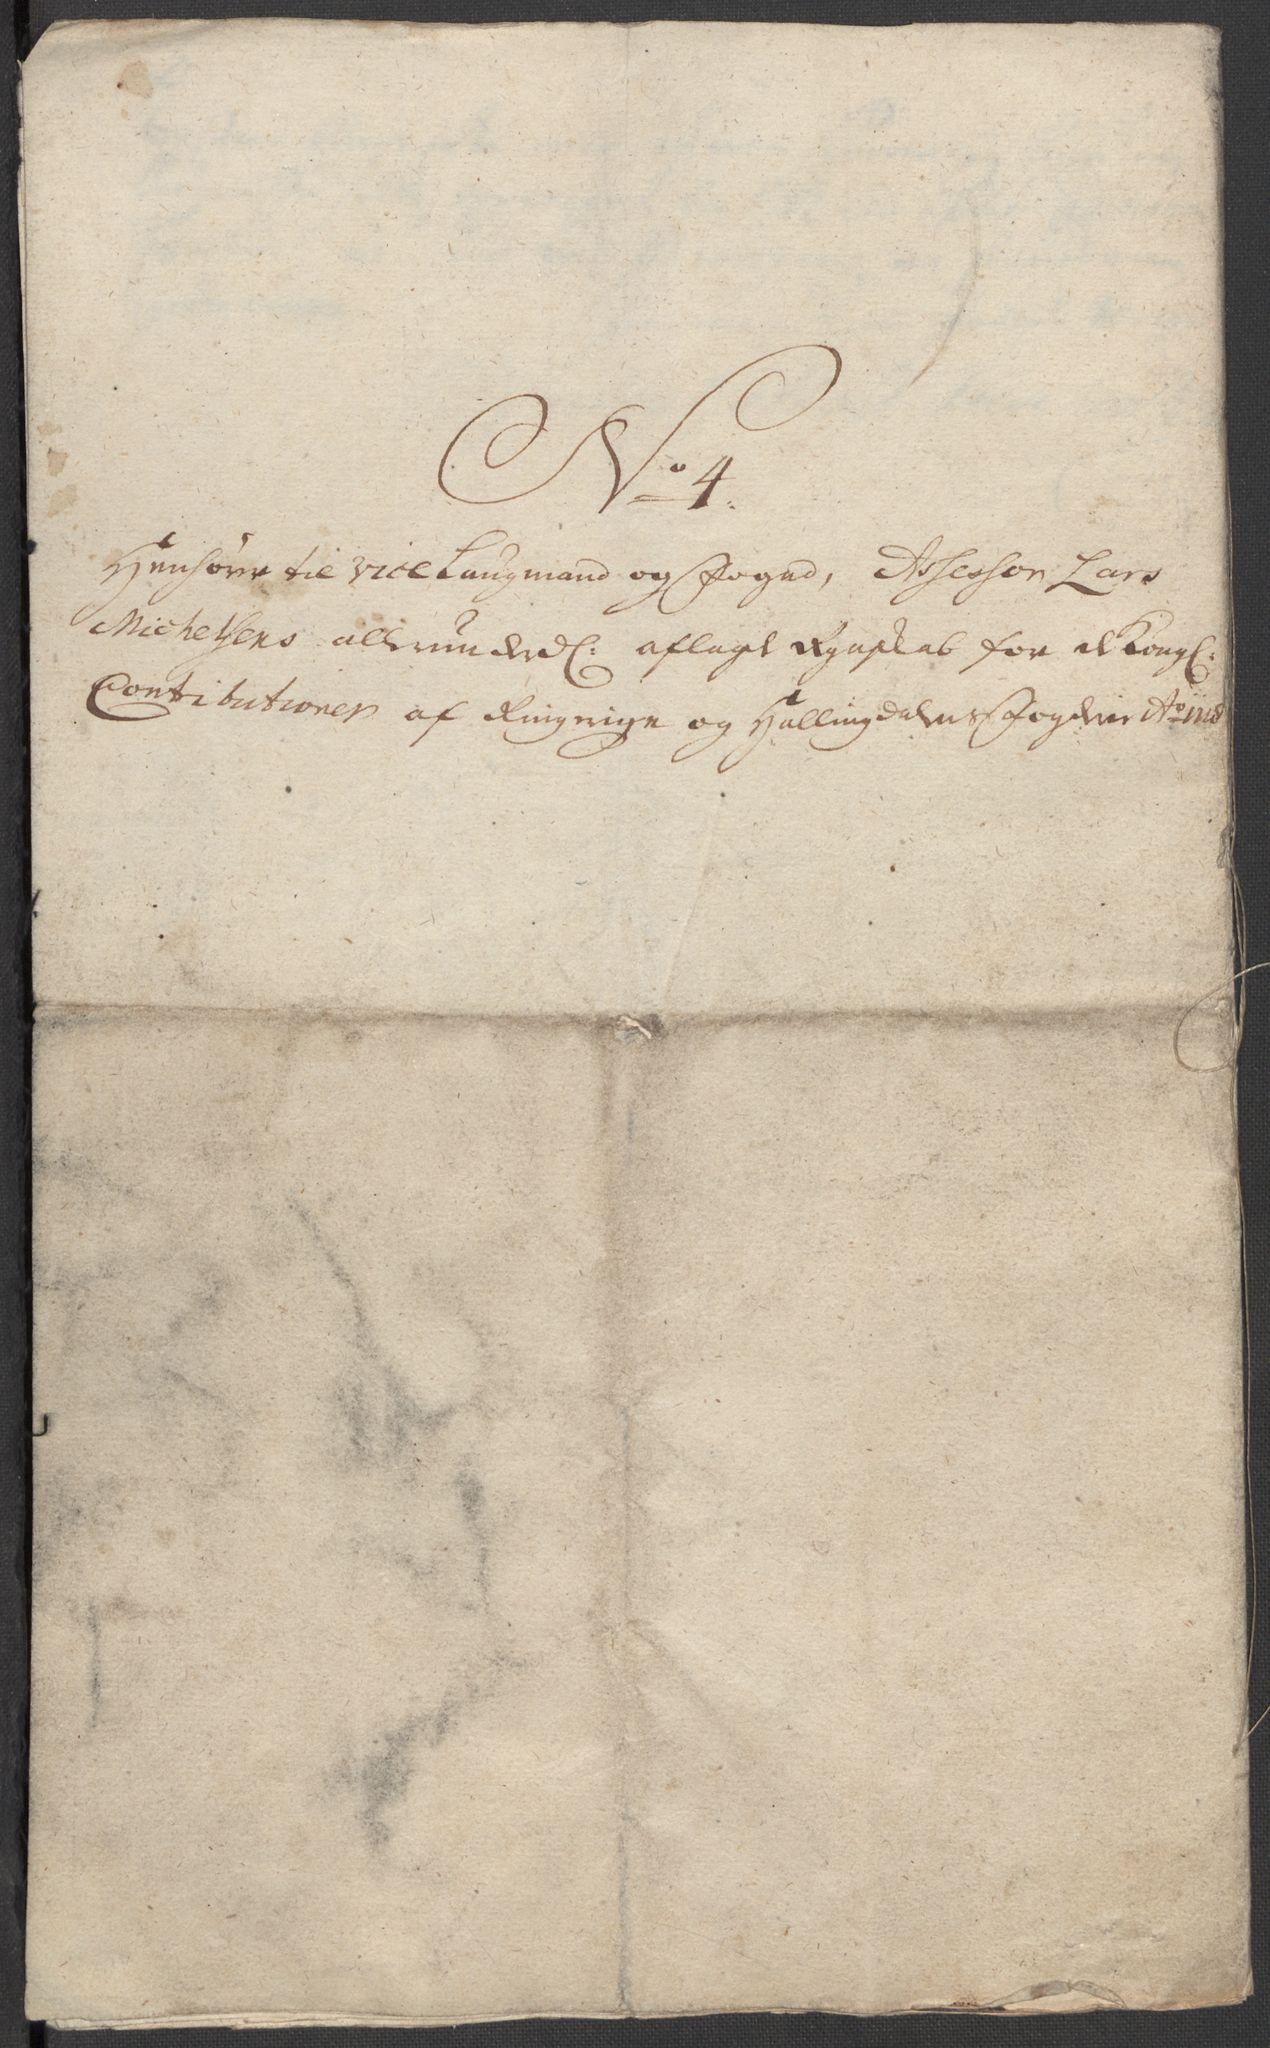 No 4.
Henhører til vice Laugmand og Foged, Assessor Lars
Michelsens allerunderd: aflagde Regnskab for de Kongl:
Contributioner af Ringerige og Hallingdalens Fogderie Ao